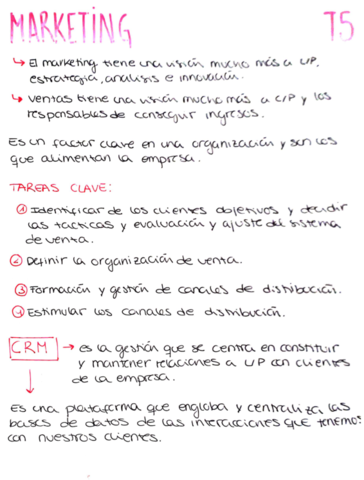 MARKETING T5
↳ El marketing tiene una visión mucho más a L/P,
estrategia, análisis e innovación.
↳ Ventas tiene una visión mucho más a C/P y los
responsables de conseguir ingresos.
Es un factor clave en una organización y son los
que alimentan la empresa.
TAREAS CLAVE:
① Identificar de los clientes objetivos y decidir
las tacticas y evaluación y ajuste del sistema
de venta.
② Definir la organización de venta.
③ Formación y gestión de canales de distribución.
④ Estimular los canales de distribución.
CRM → es la gestión que se centra en constituir
y mantener relaciones a L/P con clientes
de la empresa.
Es una plataforma que engloba y centraliza las
bases de datos de las interacciones que tenemos
con nuestros clientes.